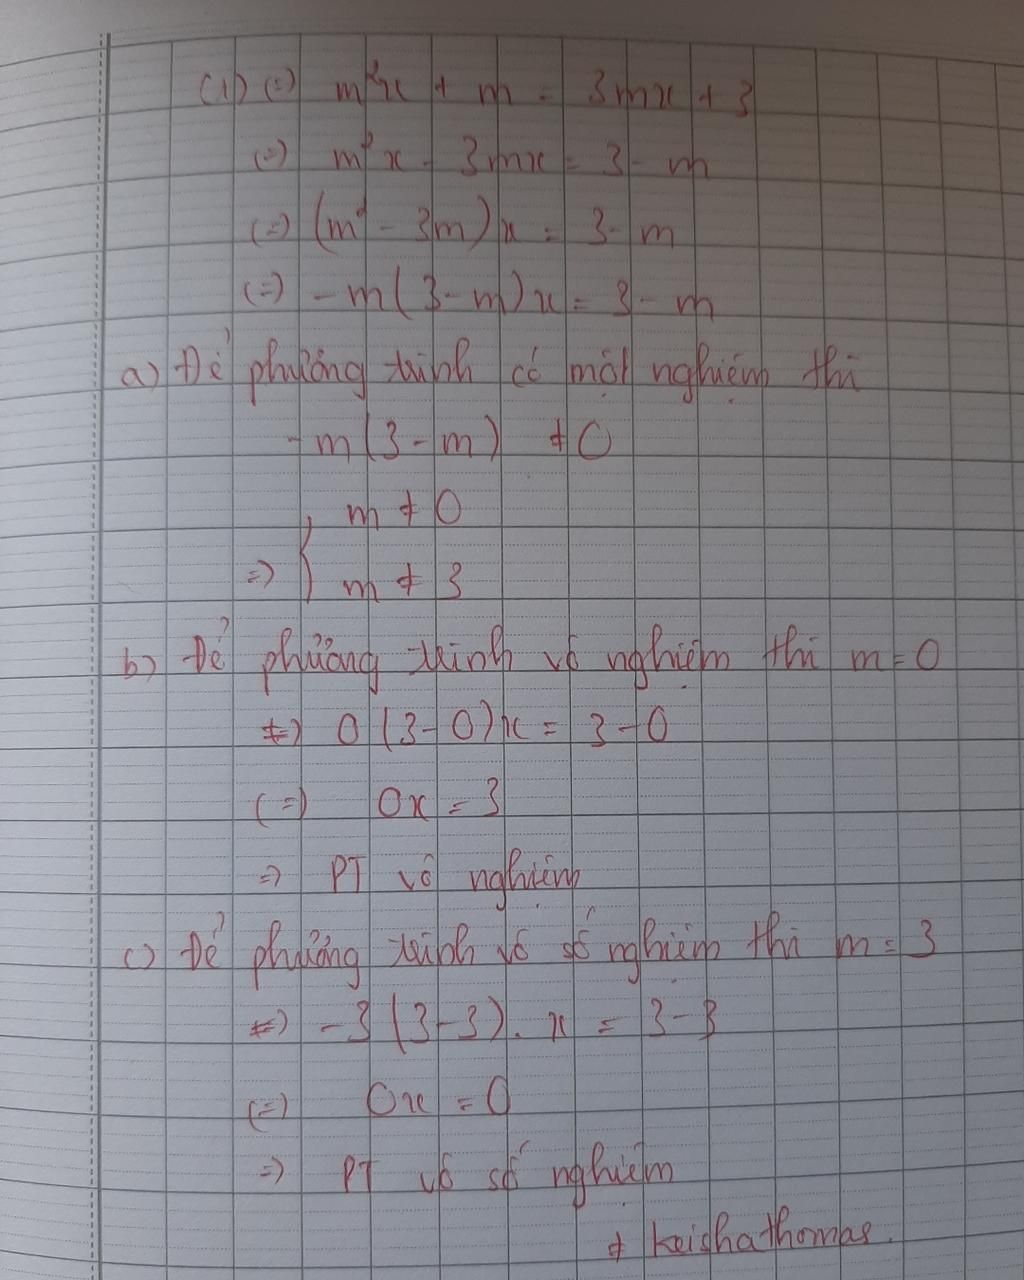 (1) (=) m²x + m = 3mx + 3
(=) m²x - 3mx = 3 - m
(=) (m² - 3m)x = 3 - m
(=) -m(3-m)x = 3 - m
a) Để phương trình có một nghiệm thì
-m(3-m) ≠ 0
=> { m ≠ 0
m ≠ 3
b) Để phương trình vô nghiệm thì m = 0
=) 0(3-0)x = 3-0
(=) 0x = 3
=) PT vô nghiệm
c) Để phương trình vô số nghiệm thì m = 3
=) -3(3-3).x = 3-3
(=) 0x = 0
=) PT vô số nghiệm
# Keishathomas.